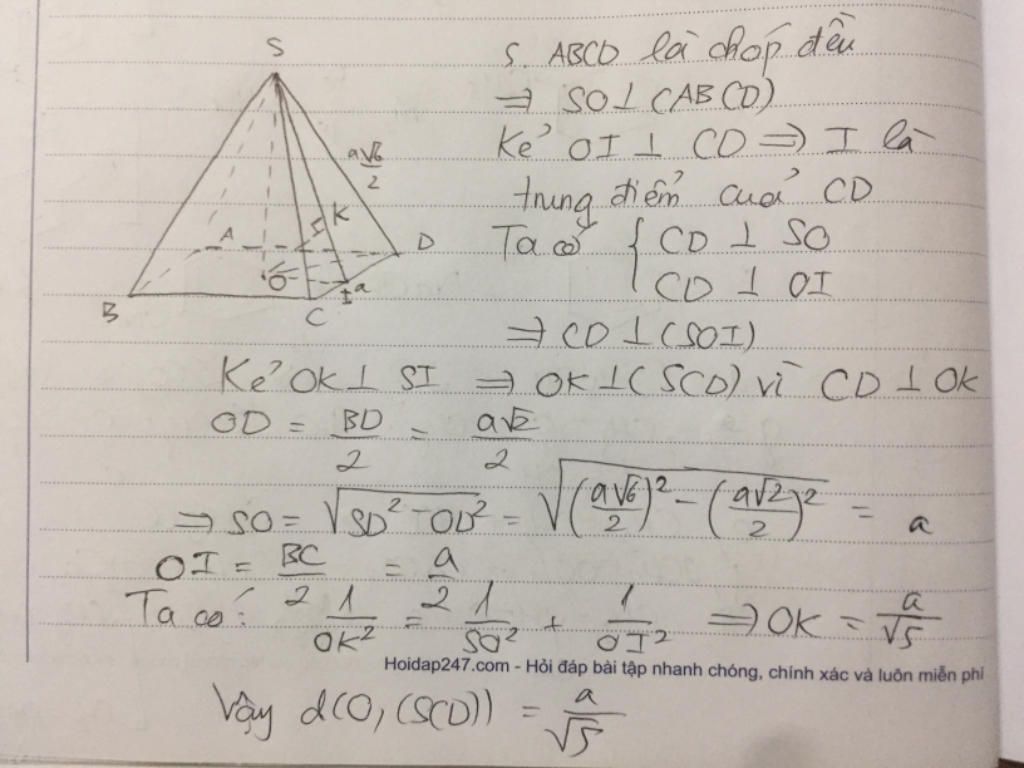 S
a√6/2
K
A
D
O
I
a
B
C
S. ABCD là chóp đều
⇒ SO ⊥ (ABCD)
Kẻ OI ⊥ CD ⇒ I là
trung điểm của CD
Ta có { CD ⊥ SO
CD ⊥ OI
⇒ CD ⊥ (SOI)
Kẻ OK ⊥ SI ⇒ OK ⊥ (SCD) vì CD ⊥ OK
OD = BD/2 = a√2/2
⇒ SO = √(SD² - OD²) = √((a√6/2)² - (a√2/2)²) = a
OI = BC/2 = a/2
Ta có: 1/OK² = 1/SO² + 1/OI² ⇒ OK = a/√5
Hoidap247.com - Hỏi đáp bài tập nhanh chóng, chính xác và luôn miễn phí
Vậy d(O, (SCD)) = a/√5